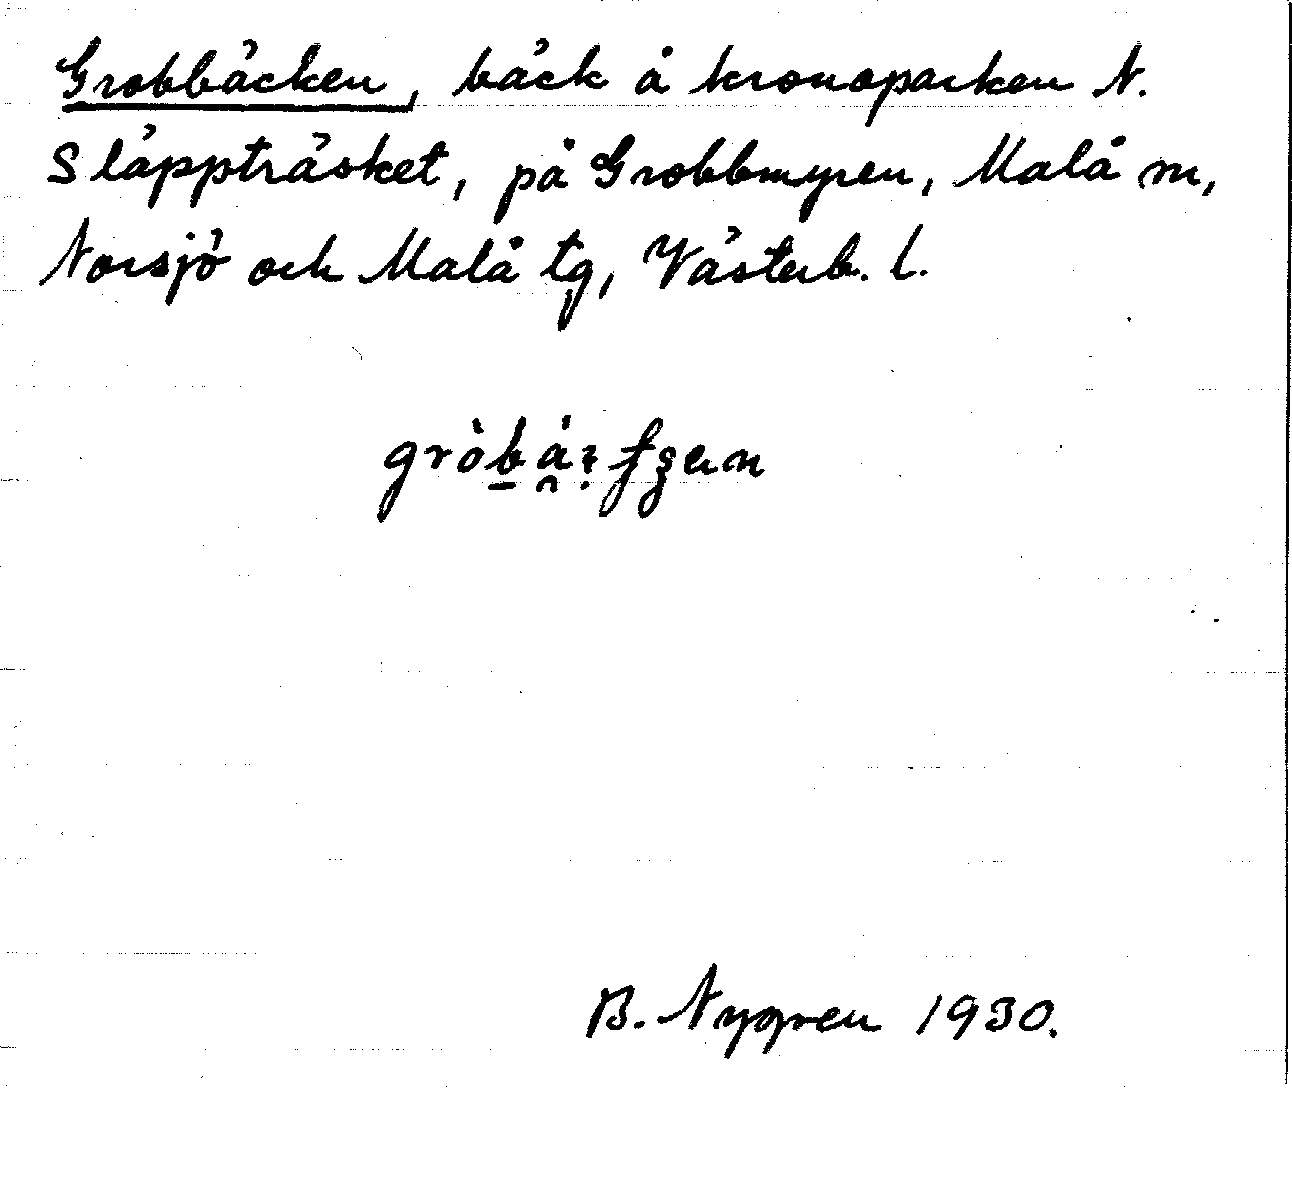 Grobbäcken, bäck å kronoparken N.
Släppträsket, på Grobbmyren, Malå sn,
Norsjö och Malå tg, Västerb. l.
B. Nygren 1930.